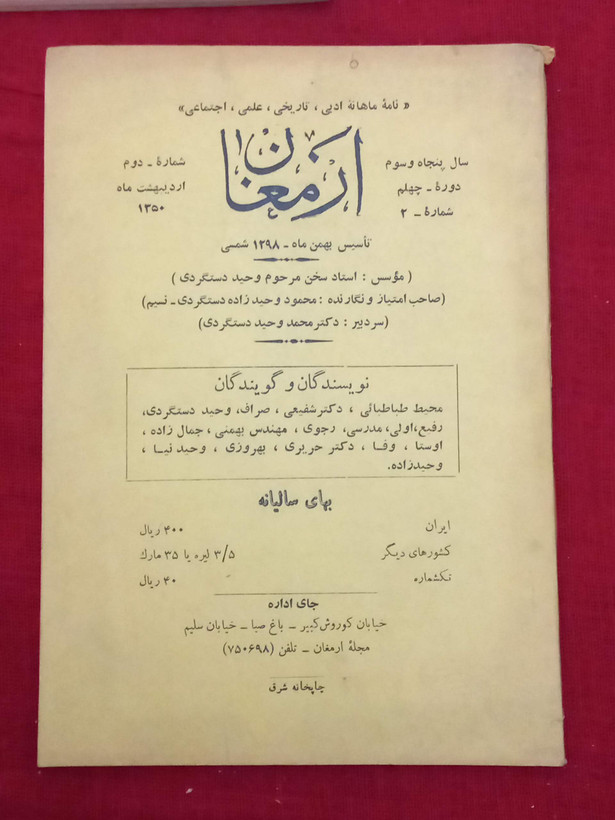 «نامهٔ ماهانهٔ ادبی، تاریخی، علمی، اجتماعی»
ارمغان
سال پنجاه وسوم
دورهٔ ـ چهلم
شمارهٔ ـ ۲
شمارهٔ ـ دوم
اردیبهشت ماه
۱۳۵۰
تأسیس بهمن ماه ـ ۱۲۹۸ شمسی
( مؤسس : استاد سخن مرحوم وحید دستگردی )
(صاحب امتیاز و نگارنده : محمود وحیدزاده دستگردی ـ نسیم)
(سردبیر : دکتر محمد وحید دستگردی)
نویسندگان و گویندگان
محیط طباطبائی ، دکتر شفیعی ، صراف، وحید دستگردی،
رفیع، اولی، مدرسی، رجوی ، مهندس بهمنی ، جمال زاده ،
اوستا ، وفا ، دکتر حریری ، بهروزی ، وحید نیا ،
وحیدزاده.
بهای سالیانه
ایران ۴۰۰ ریال
کشورهای دیگر ۳/۵ لیره یا ۳۵ مارك
تکشماره ۴۰ ریال
جای اداره
خیابان کوروش کبیر ـ باغ صبا ـ خیابان سلیم
مجلهٔ ارمغان ـ تلفن (۷۵۰۶۹۸)
چاپخانه شرق